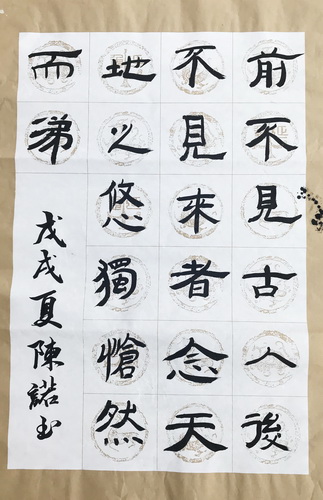 前不見古人後
不見來者念天
地之悠獨愴然
而涕
戊戌夏陳諾玉